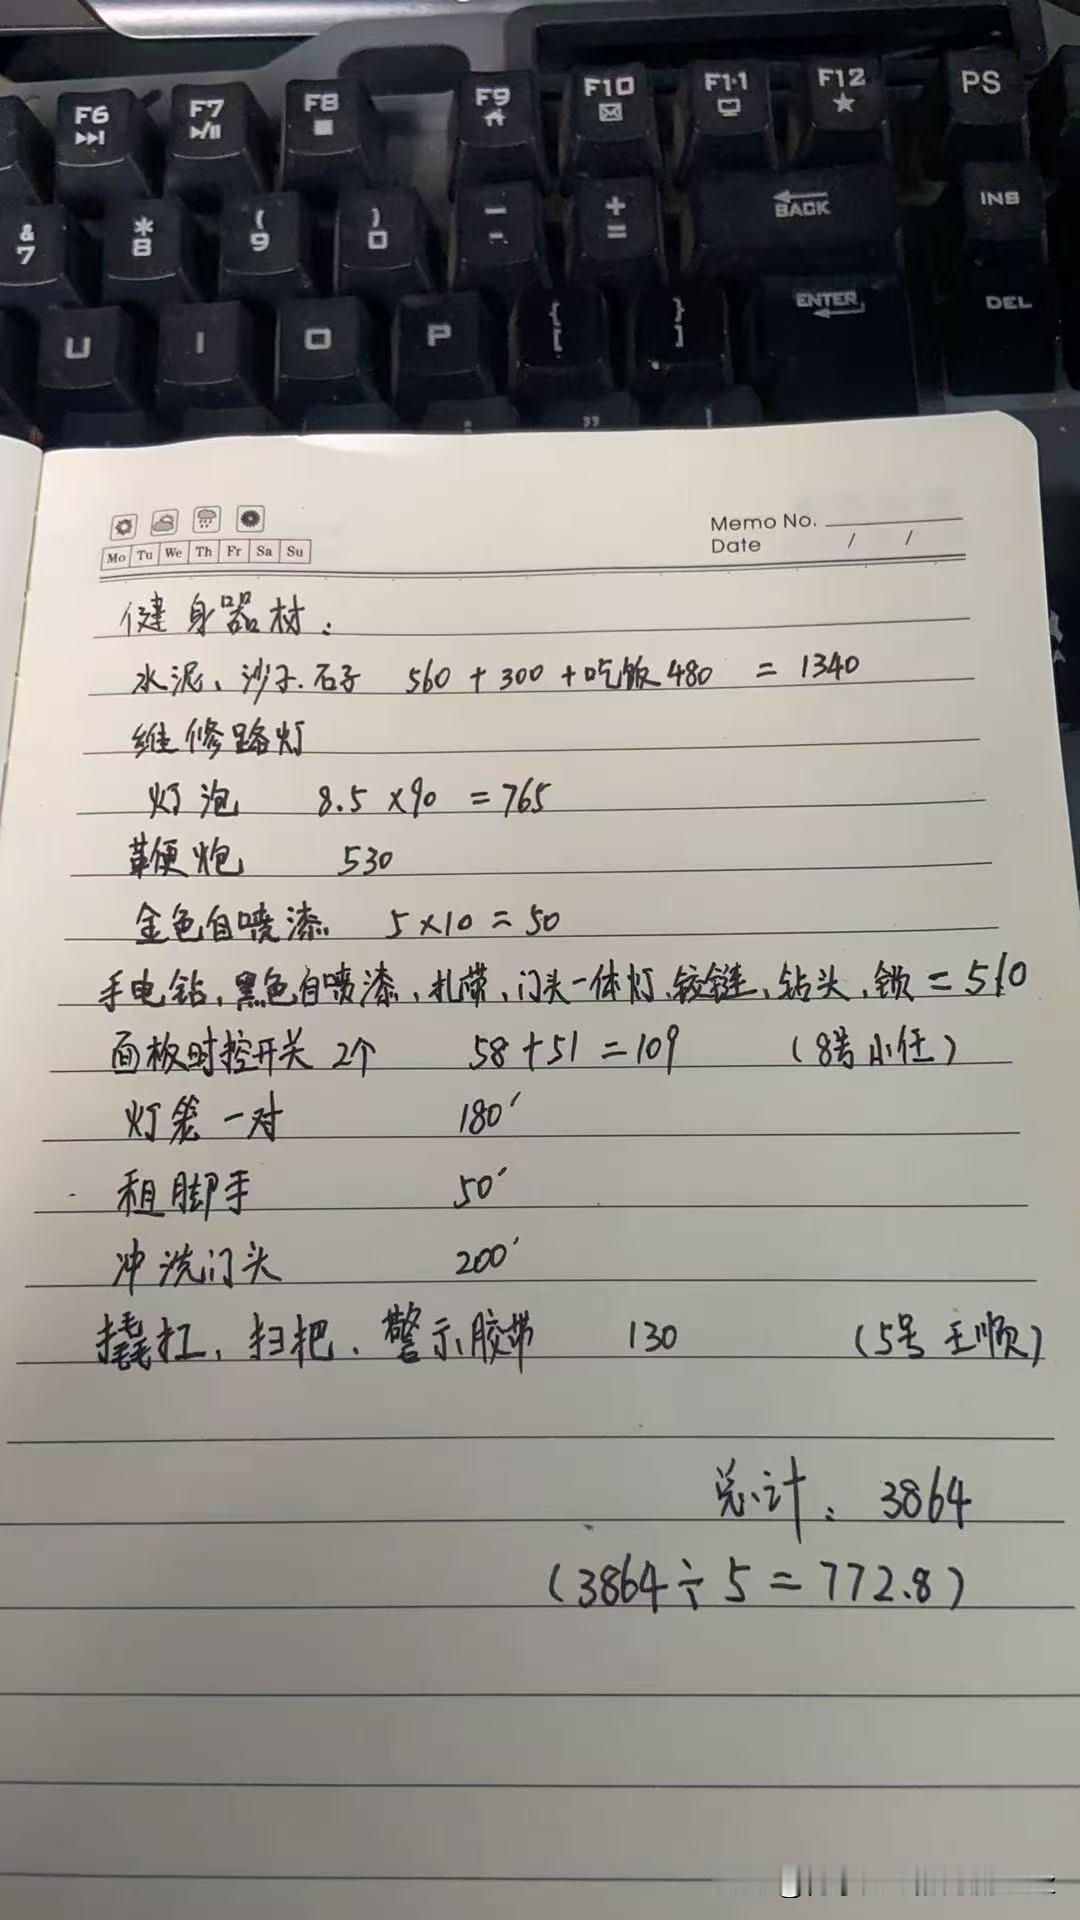 F6 F7 F8 F9 F10 F11 F12 PS
& 7 * 8 ( 9 ) 0 - + = BACK INS
U I O P { [ } ] ENTER DEL
Memo No.
Mo Tu We Th Fr Sa Su Date / /
健身器材：
水泥、沙子.石子 560 + 300 + 吃饭480 = 1340
维修路灯
灯泡 8.5 ×90 = 765
鞭炮 530
金色自喷漆 5×10 = 50
手电钻，黑色自喷漆，扎带，门头一体灯，铰链、钻头，锁 = 510
面板时控开关 2个 58 + 51 = 109 （8号小任）
灯笼一对 180
租脚手 50
冲洗门头 200
撬杠，扫把、警示胶带 130 （5号 王顺）
总计：3864
（3864÷5 = 772.8）